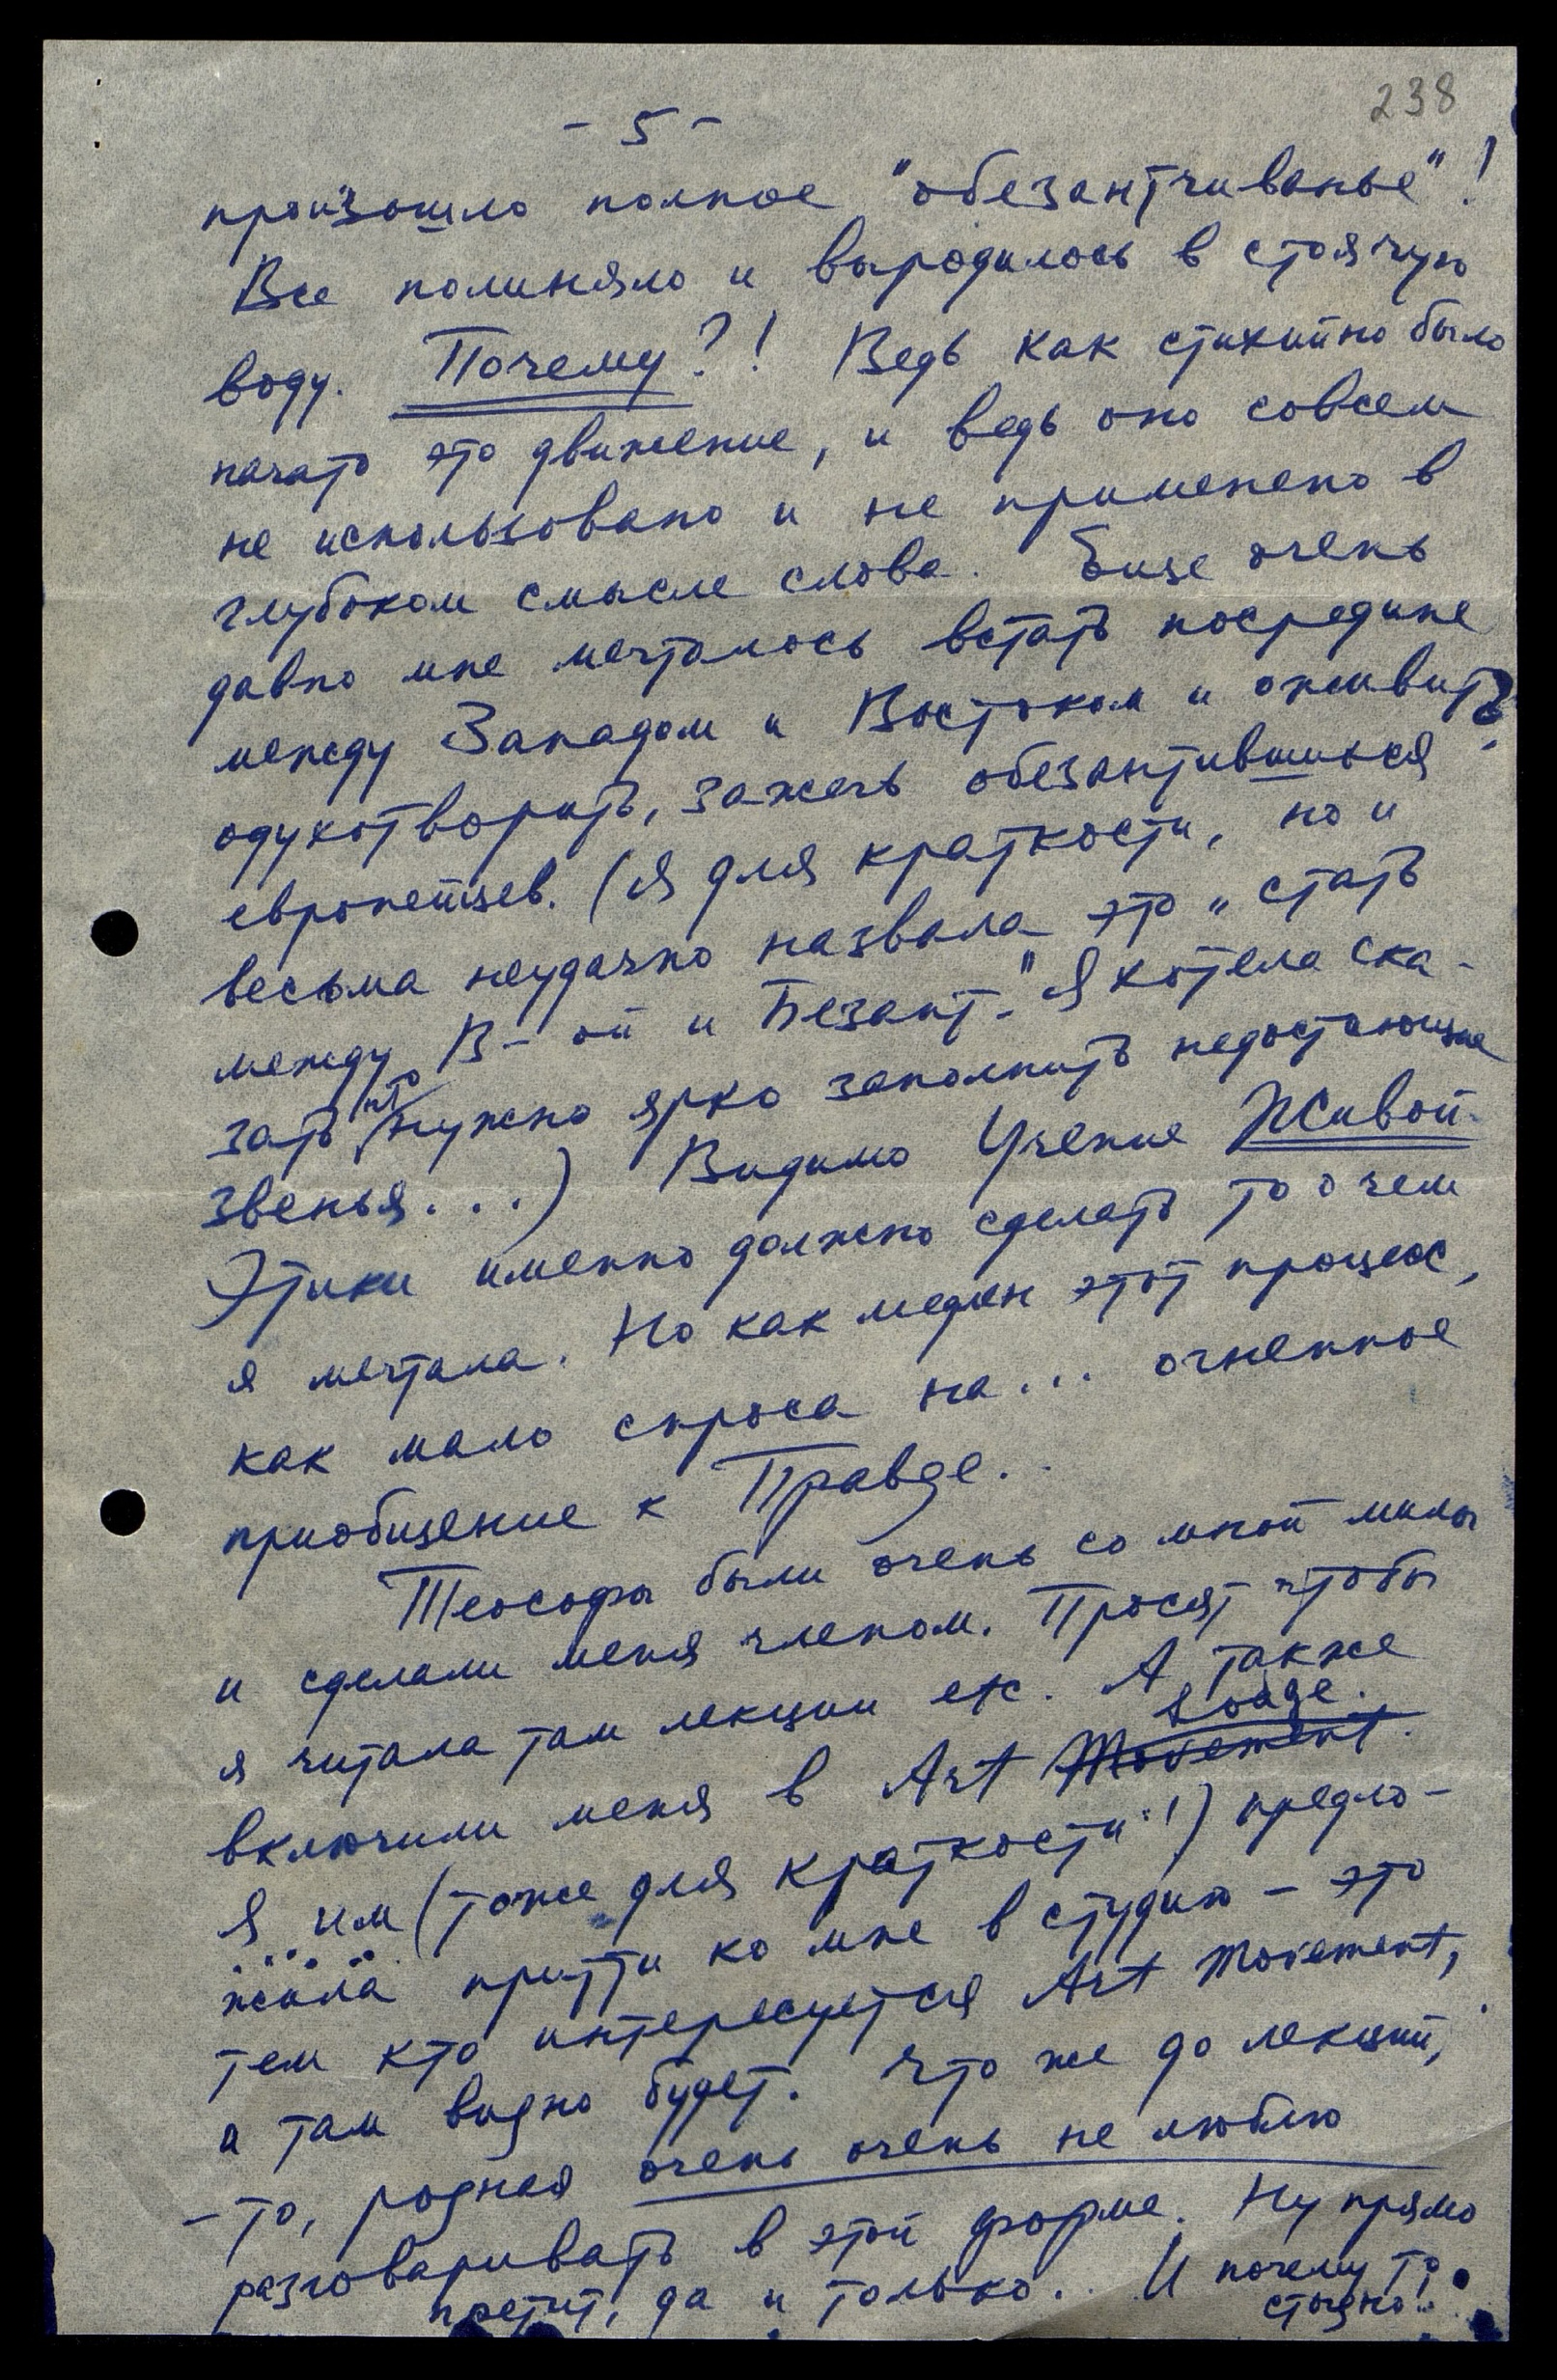 238
- 5 -
произошло полное "обезантчиванье"!
Все полиняло и выродилось в стоячую
воду. Почему?! Ведь как стихийно было
начато это движение, и ведь оно совсем
не использовано и не применено в
глубоком смысле слова. Еще очень
давно мне мечталось встать посредине
между Западом и Востоком и оживить,
одухотворить, зажечь обезантившихся
европейцев. (Я для краткости, но и
весьма неудачно назвала это "стать
между В-ой и Безант." Я хотела ска-
зать что нужно ярко заполнить недостающие
звенья...) Видимо Учение Живой
Этики именно должно сделать то о чем
я мечтала. Но как медлен этот процесс,
как мало спроса на... огненное
приобщение к Правде..
Теософы были очень со мной милы
и сделали меня членом. Просят чтобы
я читала там лекции etc. А также
включили меня в Art Movement. Loage.
Я им (тоже для краткости!) предло-
жила притти ко мне в студию - это
тем кто интересуется Art Movement,
а там видно будет. Что же до лекций,
- то, родная очень очень не люблю
разговаривать в этой форме. Ну прямо
претит, да и только.. И почему то
стыдно!.